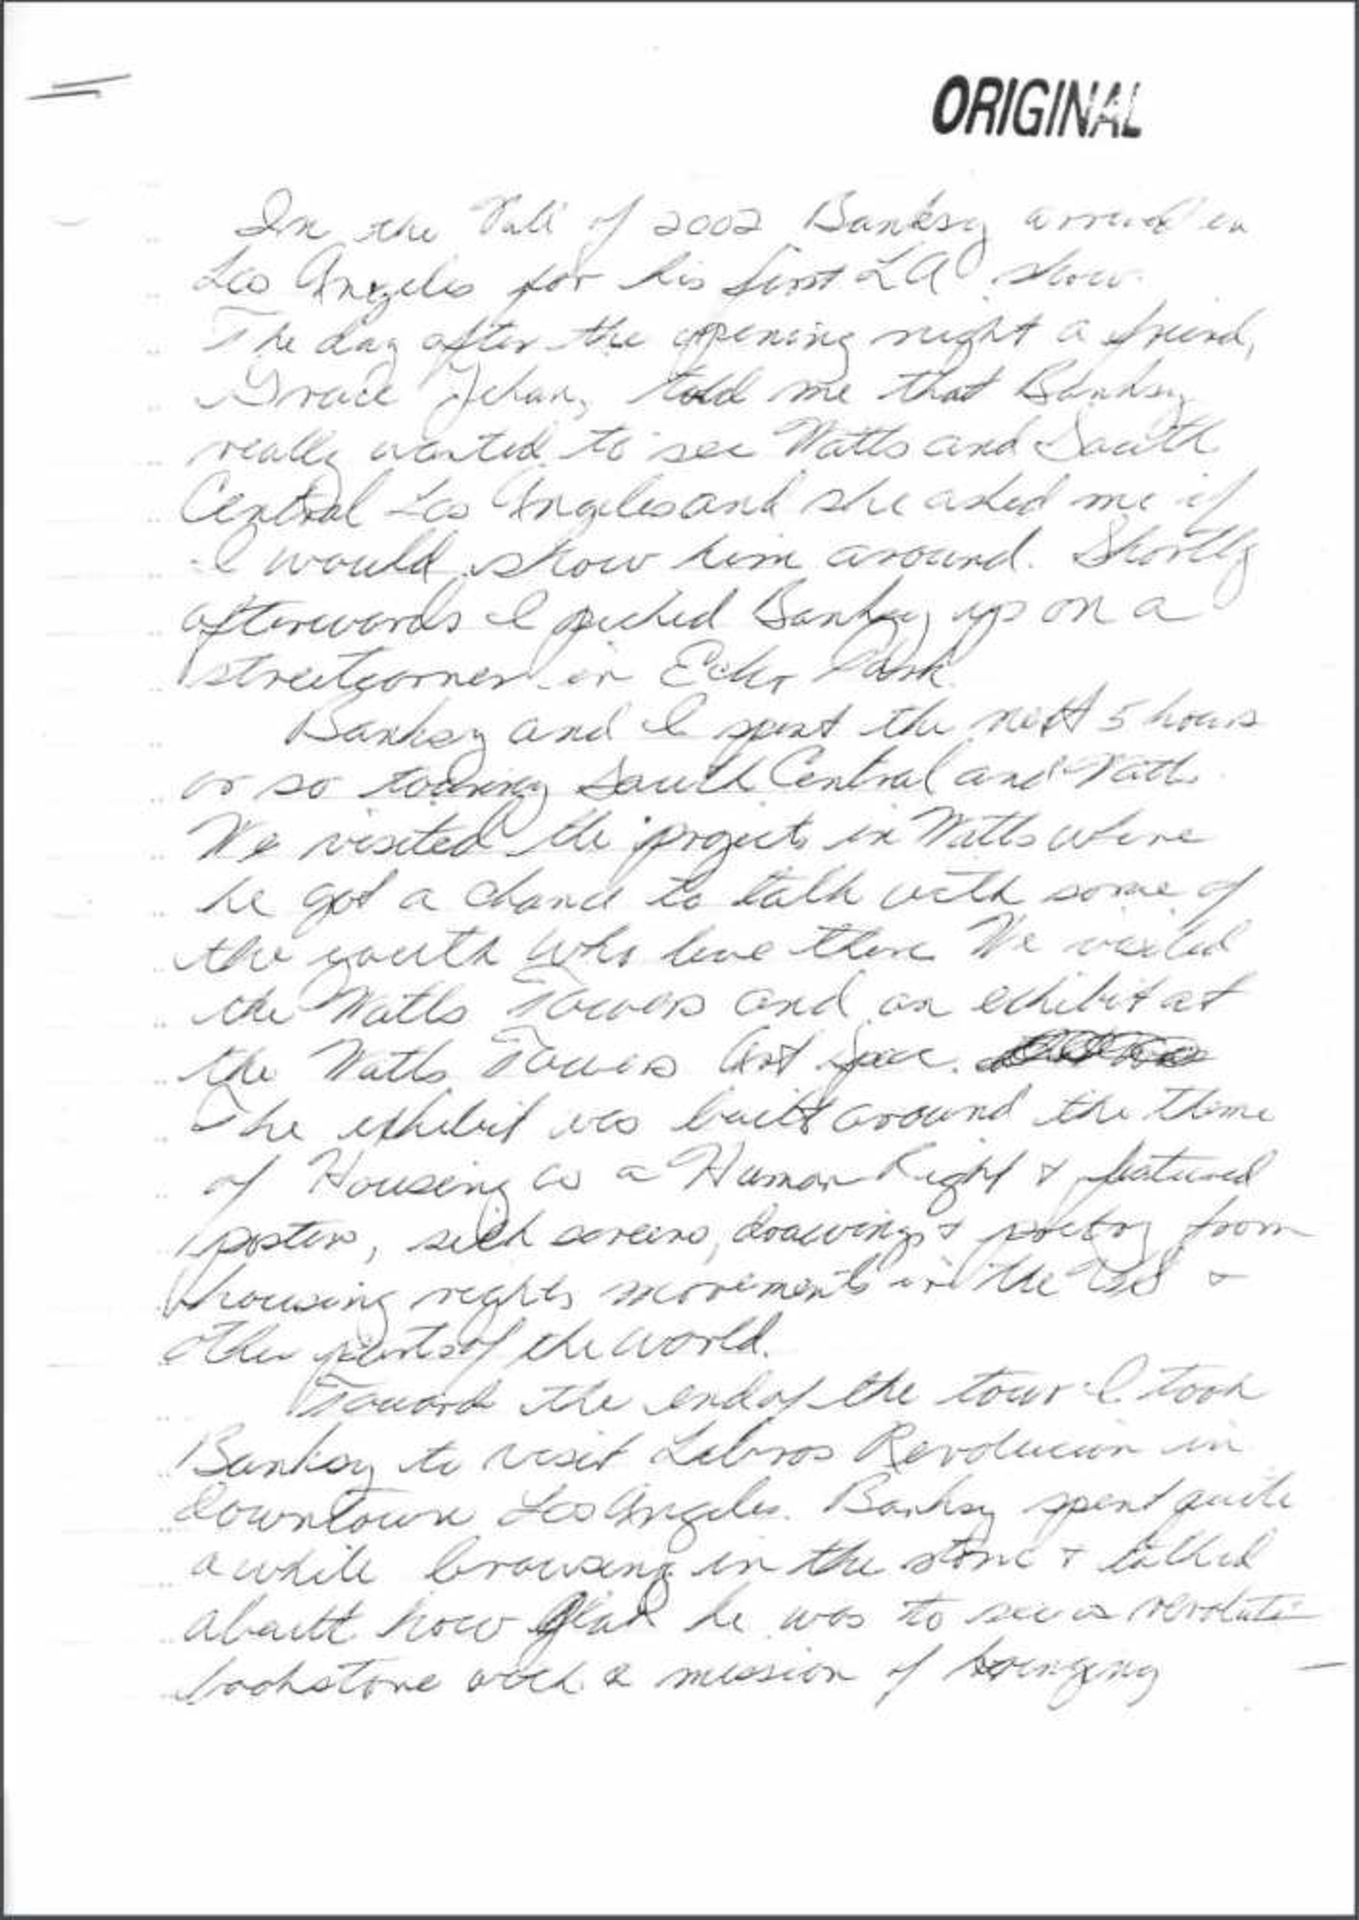 ORIGINAL
In the Fall of 2002 Banksy arrived in
Los Angeles for his first LA show.
The day after the opening night a friend,
Grace Jehan, told me that Banksy
really wanted to see Watts and South
Central Los Angeles and she asked me if
I would show him around. Shortly
afterwards I picked Banksy up on a
streetcorner in Echo Park
Banksy and I spent the next 5 hours
or so touring South Central and Watts.
We visited the projects in Watts where
he got a chance to talk with some of
the youth who live there We visited
the Watts Towers and an exhibit at
the Watts Towers Art Space.
The exhibit was built around the theme
of Housing as a Human Right & featured
posters, silk screens, drawings & poetry from
housing rights movements in the US &
other parts of the world.
Toward the end of the tour I took
Banksy to visit Libros Revolucion in
downtown Los Angeles. Banksy spent quite
a while browsing in the store & talked
about how glad he was to see a
bookstore with a mission of bringing